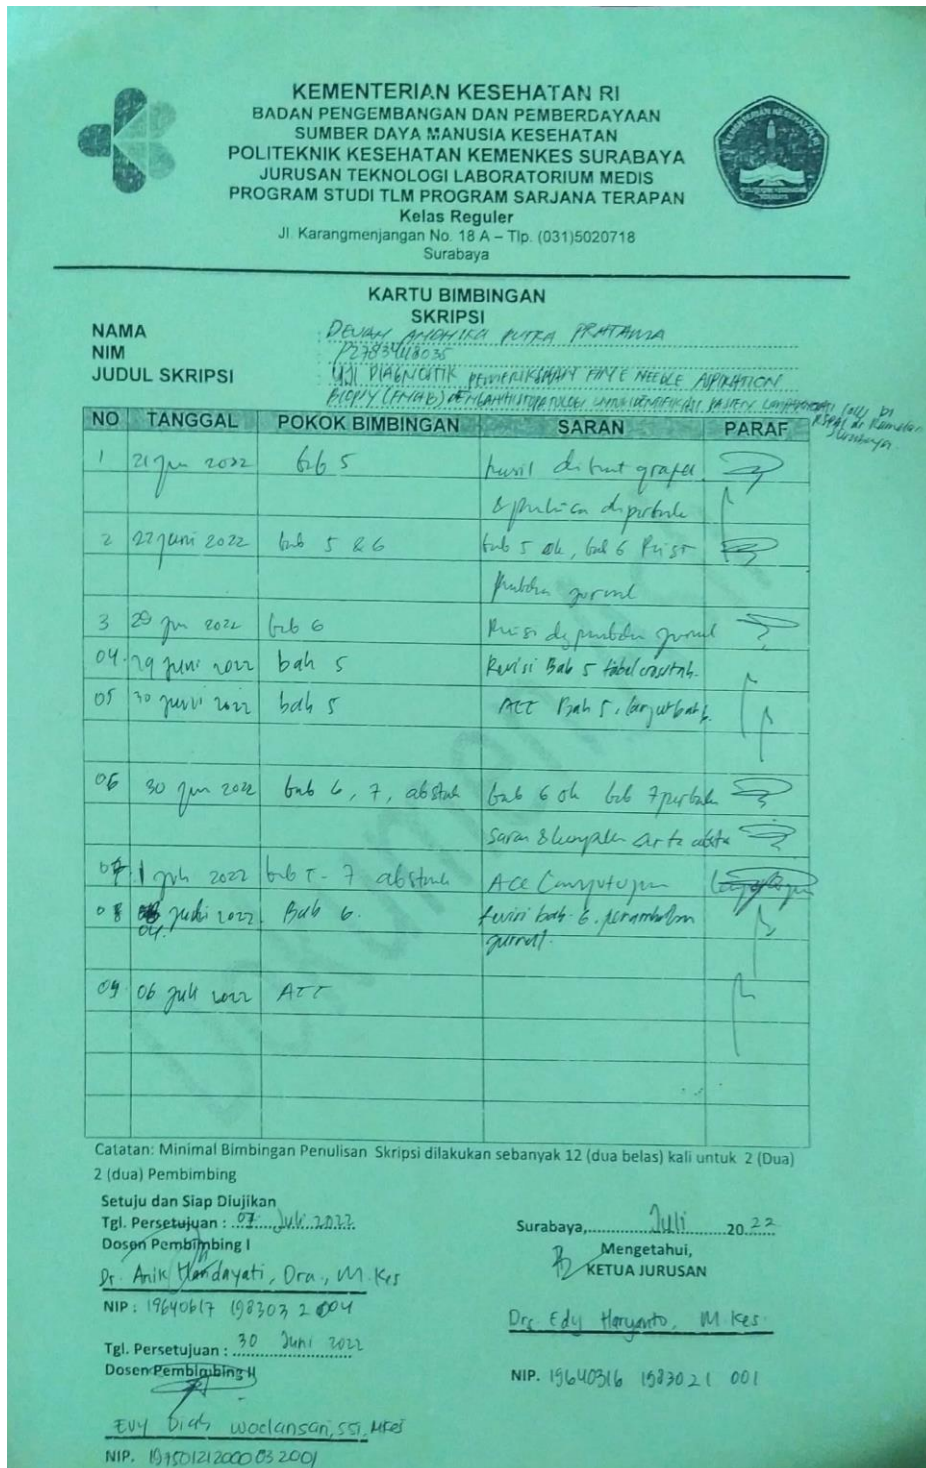 KEMENTERIAN KESEHATAN RI
BADAN PENGEMBANGAN DAN PEMBERDAYAAN
SUMBER DAYA MANUSIA KESEHATAN
POLITEKNIK KESEHATAN KEMENKES SURABAYA
JURUSAN TEKNOLOGI LABORATORIUM MEDIS
PROGRAM STUDI TLM PROGRAM SARJANA TERAPAN
Kelas Reguler
Jl. Karangmenjangan No. 18 A – Tlp. (031)5020718
Surabaya
KARTU BIMBINGAN
SKRIPSI
NAMA : ANDHIKA PUTRA PRATAMA
NIM : P27834118035
JUDUL SKRIPSI : UJI DIAGNOSTIK PEMERIKSAAN FINE NEEDLE ASPIRATION
BIOPSY (FNAB) DENGAN HISTOPATOLOGI UNTUK IDENTIFIKASI PASIEN DI
Surabaya
NO TANGGAL POKOK BIMBINGAN SARAN PARAF
1 21 jun 2022 bab 5 hasil dibuat grafik
2 22 juni 2022 bab 5 & 6 bab 5 ok, bab 6
jurnal
3 29 jun 2022 bab 6 jurnal
04. 29 juni 2022 bab 5 Revisi Bab 5 tabel
05 30 juni 2022 bab 5 ACC Bab 5, lanjut bab 6.
06 30 jun 2022 bab 6, 7, abstrak bab 6 ok bab 7
saran &
07 1 juli 2022 7 abstrak ACC
08 04. 2022 Bab 6. revisi bab 6. penambahan
jurnal.
09 06 juli 2022 ACC
Dokumen
Catatan: Minimal Bimbingan Penulisan Skripsi dilakukan sebanyak 12 (dua belas) kali untuk 2 (Dua)
2 (dua) Pembimbing
Setuju dan Siap Diujikan
Tgl. Persetujuan : 07 Juli 2022
Dosen Pembimbing I
Dr. Anik Handayati, Dra., M.Kes
NIP : 19640617 198303 2 004
Tgl. Persetujuan : 30 Juni 2022
Dosen Pembimbing II
Evy Diah Woelansari, SSi, MKes
NIP. 197501212000032001
Surabaya, Juli 2022
Mengetahui,
KETUA JURUSAN
Drs. Edy Haryanto, M.Kes
NIP. 19640316 1983021 001